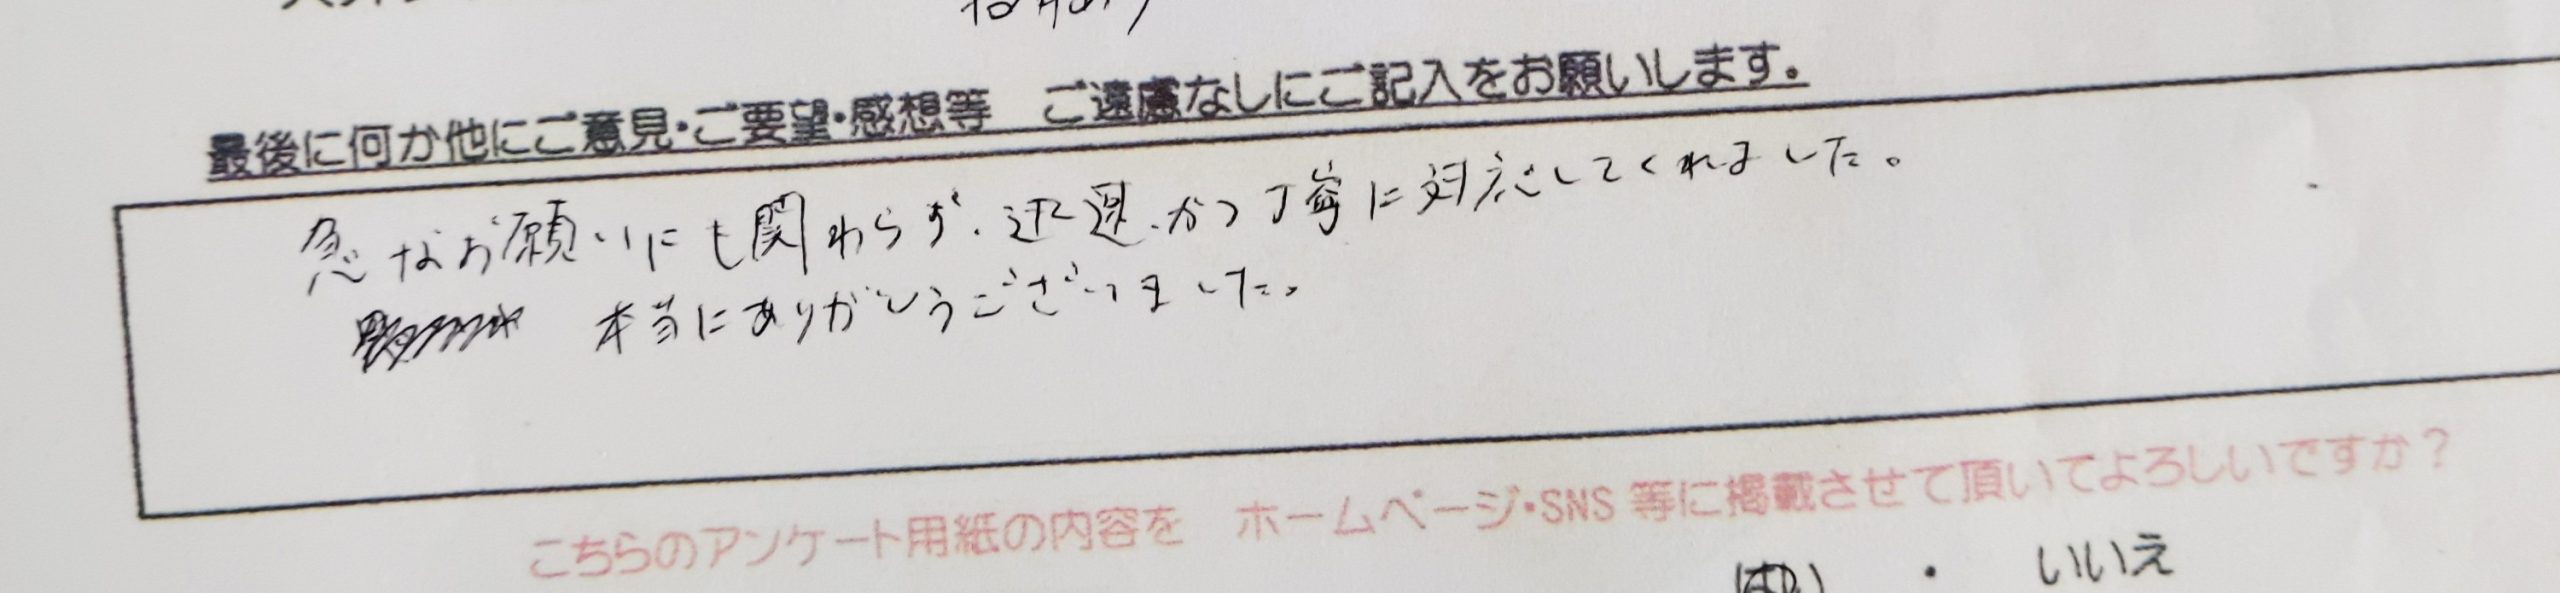 最後に何か他にご意見・ご要望・感想等　ご遠慮なしにご記入をお願いします。
急なお願いにも関わらず、迅速かつ丁寧に対応してくれました。
本当にありがとうございました。
こちらのアンケート用紙の内容を　ホームページ・SNS 等に掲載させて頂いてよろしいですか？
はい　・　いいえ